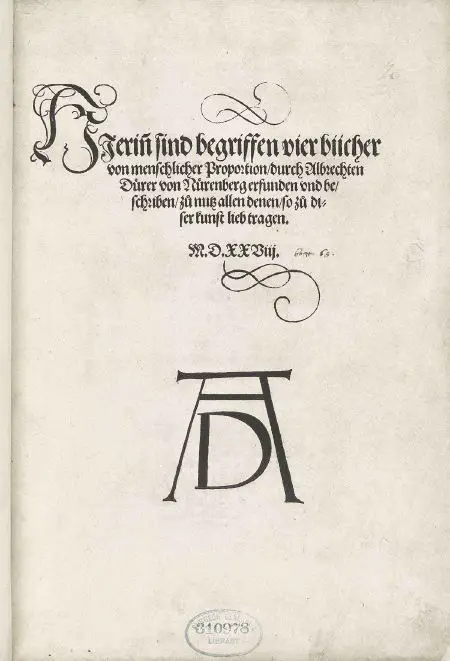 HJeriñ sind begriffen vier bücher
von menschlicher Proportion/durch Albrechten
Dürer von Nürenberg erfunden vnd be/
schriben/zů nutz allen denen/so zů di-
ser kunst lieb tragen.
M.D.XXViij.
AD
310973
LIBRARY